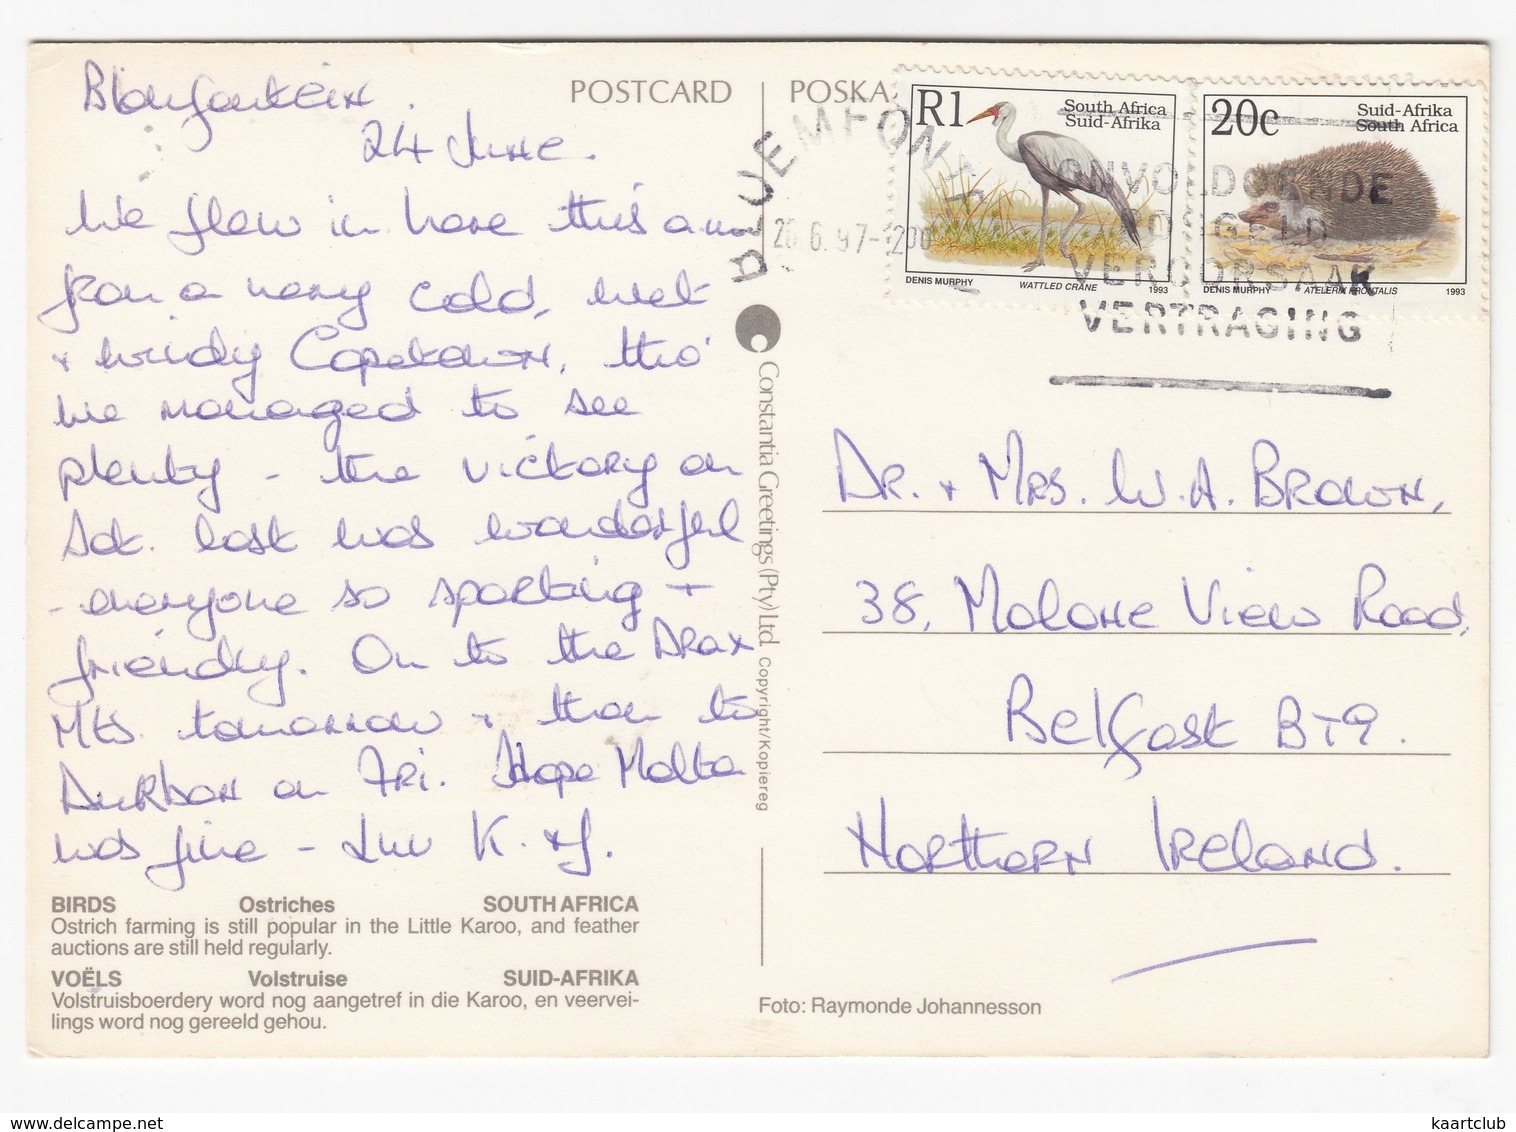 Bloemfontein.
24 June.
We flew in here this am
from a very cold, wet
+ windy Capetown, tho'
we managed to see
plenty - the victory on
Sat. last was wonderful
- everyone so sporting +
friendly. On to the Drax
Mts. tomorrow + then to
Durban on Fri. Hope Malta
was fine - Luv K. + J.
BIRDS Ostriches SOUTH AFRICA
Ostrich farming is still popular in the Little Karoo, and feather
auctions are still held regularly.
VOËLS Volstruise SUID-AFRIKA
Volstruisboerdery word nog aangetref in die Karoo, en veervei-
lings word nog gereeld gehou.
POSTCARD
Constantia Greetings (Pty) Ltd. Copyright/Kopiereg
R1
South Africa
Suid-Afrika
DENIS MURPHY WATTLED CRANE 1993
20c
Suid-Afrika
South Africa
DENIS MURPHY ATELERIX FRONTALIS 1993
6.97
ONVOLDOENDE
POSGELD
VEROORSAAK
VERTRAGING
Dr. + Mrs. W. A. Brown,
38, Malone View Road,
Belfast BT9.
Northern Ireland.
Foto: Raymonde Johannesson
kaartclub